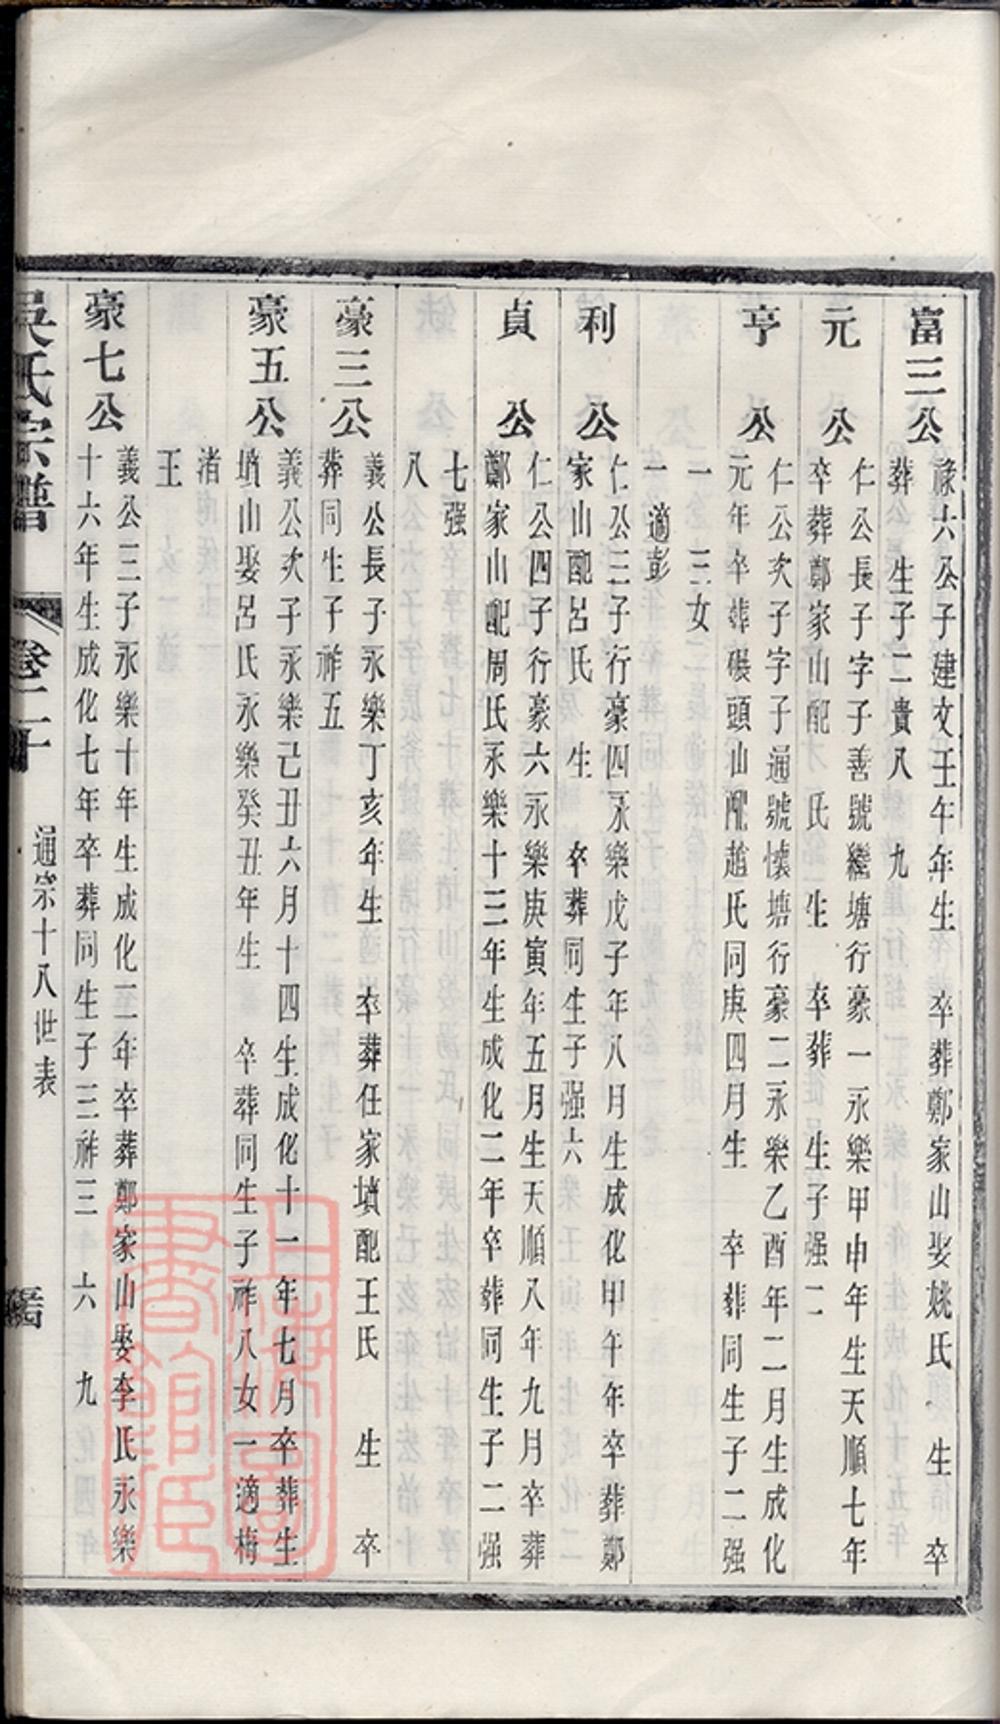 富三公
祿六公子建文壬午年生　卒葬鄭家山娶姚氏　生　卒
葬　生子二貴八　九
元　公
仁公長子字子善號繼塘行豪一永樂甲申年生天順七年
卒葬鄭家山配　氏　生　卒葬　生子强二
亨　公
仁公次子字子通號懷塘行豪二永樂乙酉年二月生成化
元年卒葬碾頭山配趙氏同庚四月生　卒葬同生子二强
一　三女
一適彭
利　公
仁公三子行豪四永樂戊子年八月生成化甲午年卒葬鄭
家山配呂氏　生　卒葬同生子强六
貞　公
仁公四子行豪六永樂庚寅年五月生天順八年九月卒葬
鄭家山配周氏永樂十三年生成化二年卒葬同生子二强
七强
八
豪三公
義公長子永樂丁亥年生　卒葬任家墳配王氏　生　卒
葬同生子祚五
豪五公
義公次子永樂己丑六月十四生成化十一年七月卒葬生
墳山娶呂氏永樂癸丑年生　卒葬同生子祚八女一適梅
渚
王
豪七公
義公三子永樂十年生成化二年卒葬鄭家山娶李氏永樂
十六年生成化七年卒葬同生子三祚三　六　九
吳氏宗譜
卷二十
通宗十八世表
上海圖
書館藏